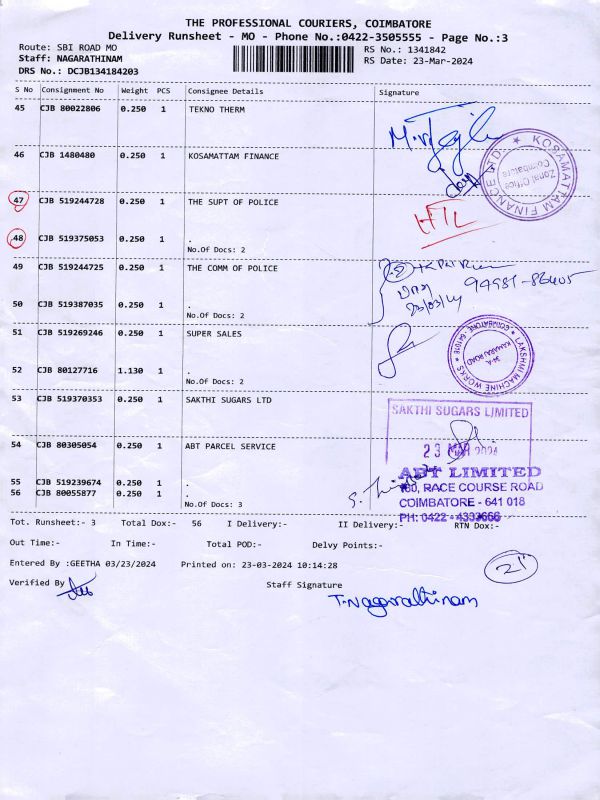 THE PROFESSIONAL COURIERS, COIMBATORE
Delivery Runsheet - MO - Phone No.:0422-3505555 - Page No.:3
Route: SBI ROAD MO
RS No.: 1341842
Staff: NAGARATHINAM
RS Date: 23-Mar-2024
DRS No.: DCJB134184203
S No Consignment No Weight PCS Consignee Details Signature
45 CJB 80022806 0.250 1 TEKNO THERM
46 CJB 1480480 0.250 1 KOSAMATTAM FINANCE
KOSAMATTAM FINANCE LTD.
Zonal Office
Coimbatore
47 CJB 519244728 0.250 1 THE SUPT OF POLICE
48 CJB 519375053 0.250 1 .
No.Of Docs: 2
49 CJB 519244725 0.250 1 THE COMM OF POLICE
94981-86405
23/03/24
50 CJB 519387035 0.250 1 .
No.Of Docs: 2
51 CJB 519269246 0.250 1 SUPER SALES
LAKSHMI MACHINE WORKS
34-A,
KAMARAJ ROAD
COIMBATORE - 641018
52 CJB 80127716 1.130 1 .
No.Of Docs: 2
53 CJB 519370353 0.250 1 SAKTHI SUGARS LTD
SAKTHI SUGARS LIMITED
23 MAR 2024
54 CJB 80305054 0.250 1 ABT PARCEL SERVICE
ABT LIMITED
180, RACE COURSE ROAD
COIMBATORE - 641 018
PH: 0422 - 4333666
55 CJB 519239674 0.250 1 .
56 CJB 80055877 0.250 1 .
No.Of Docs: 3
Tot. Runsheet:- 3 Total Dox:- 56 I Delivery:- II Delivery:- RTN Dox:-
Out Time:- In Time:- Total POD:- Delvy Points:-
21
Entered By :GEETHA 03/23/2024 Printed on: 23-03-2024 10:14:28
Verified By
Staff Signature
T.Nagarathinam